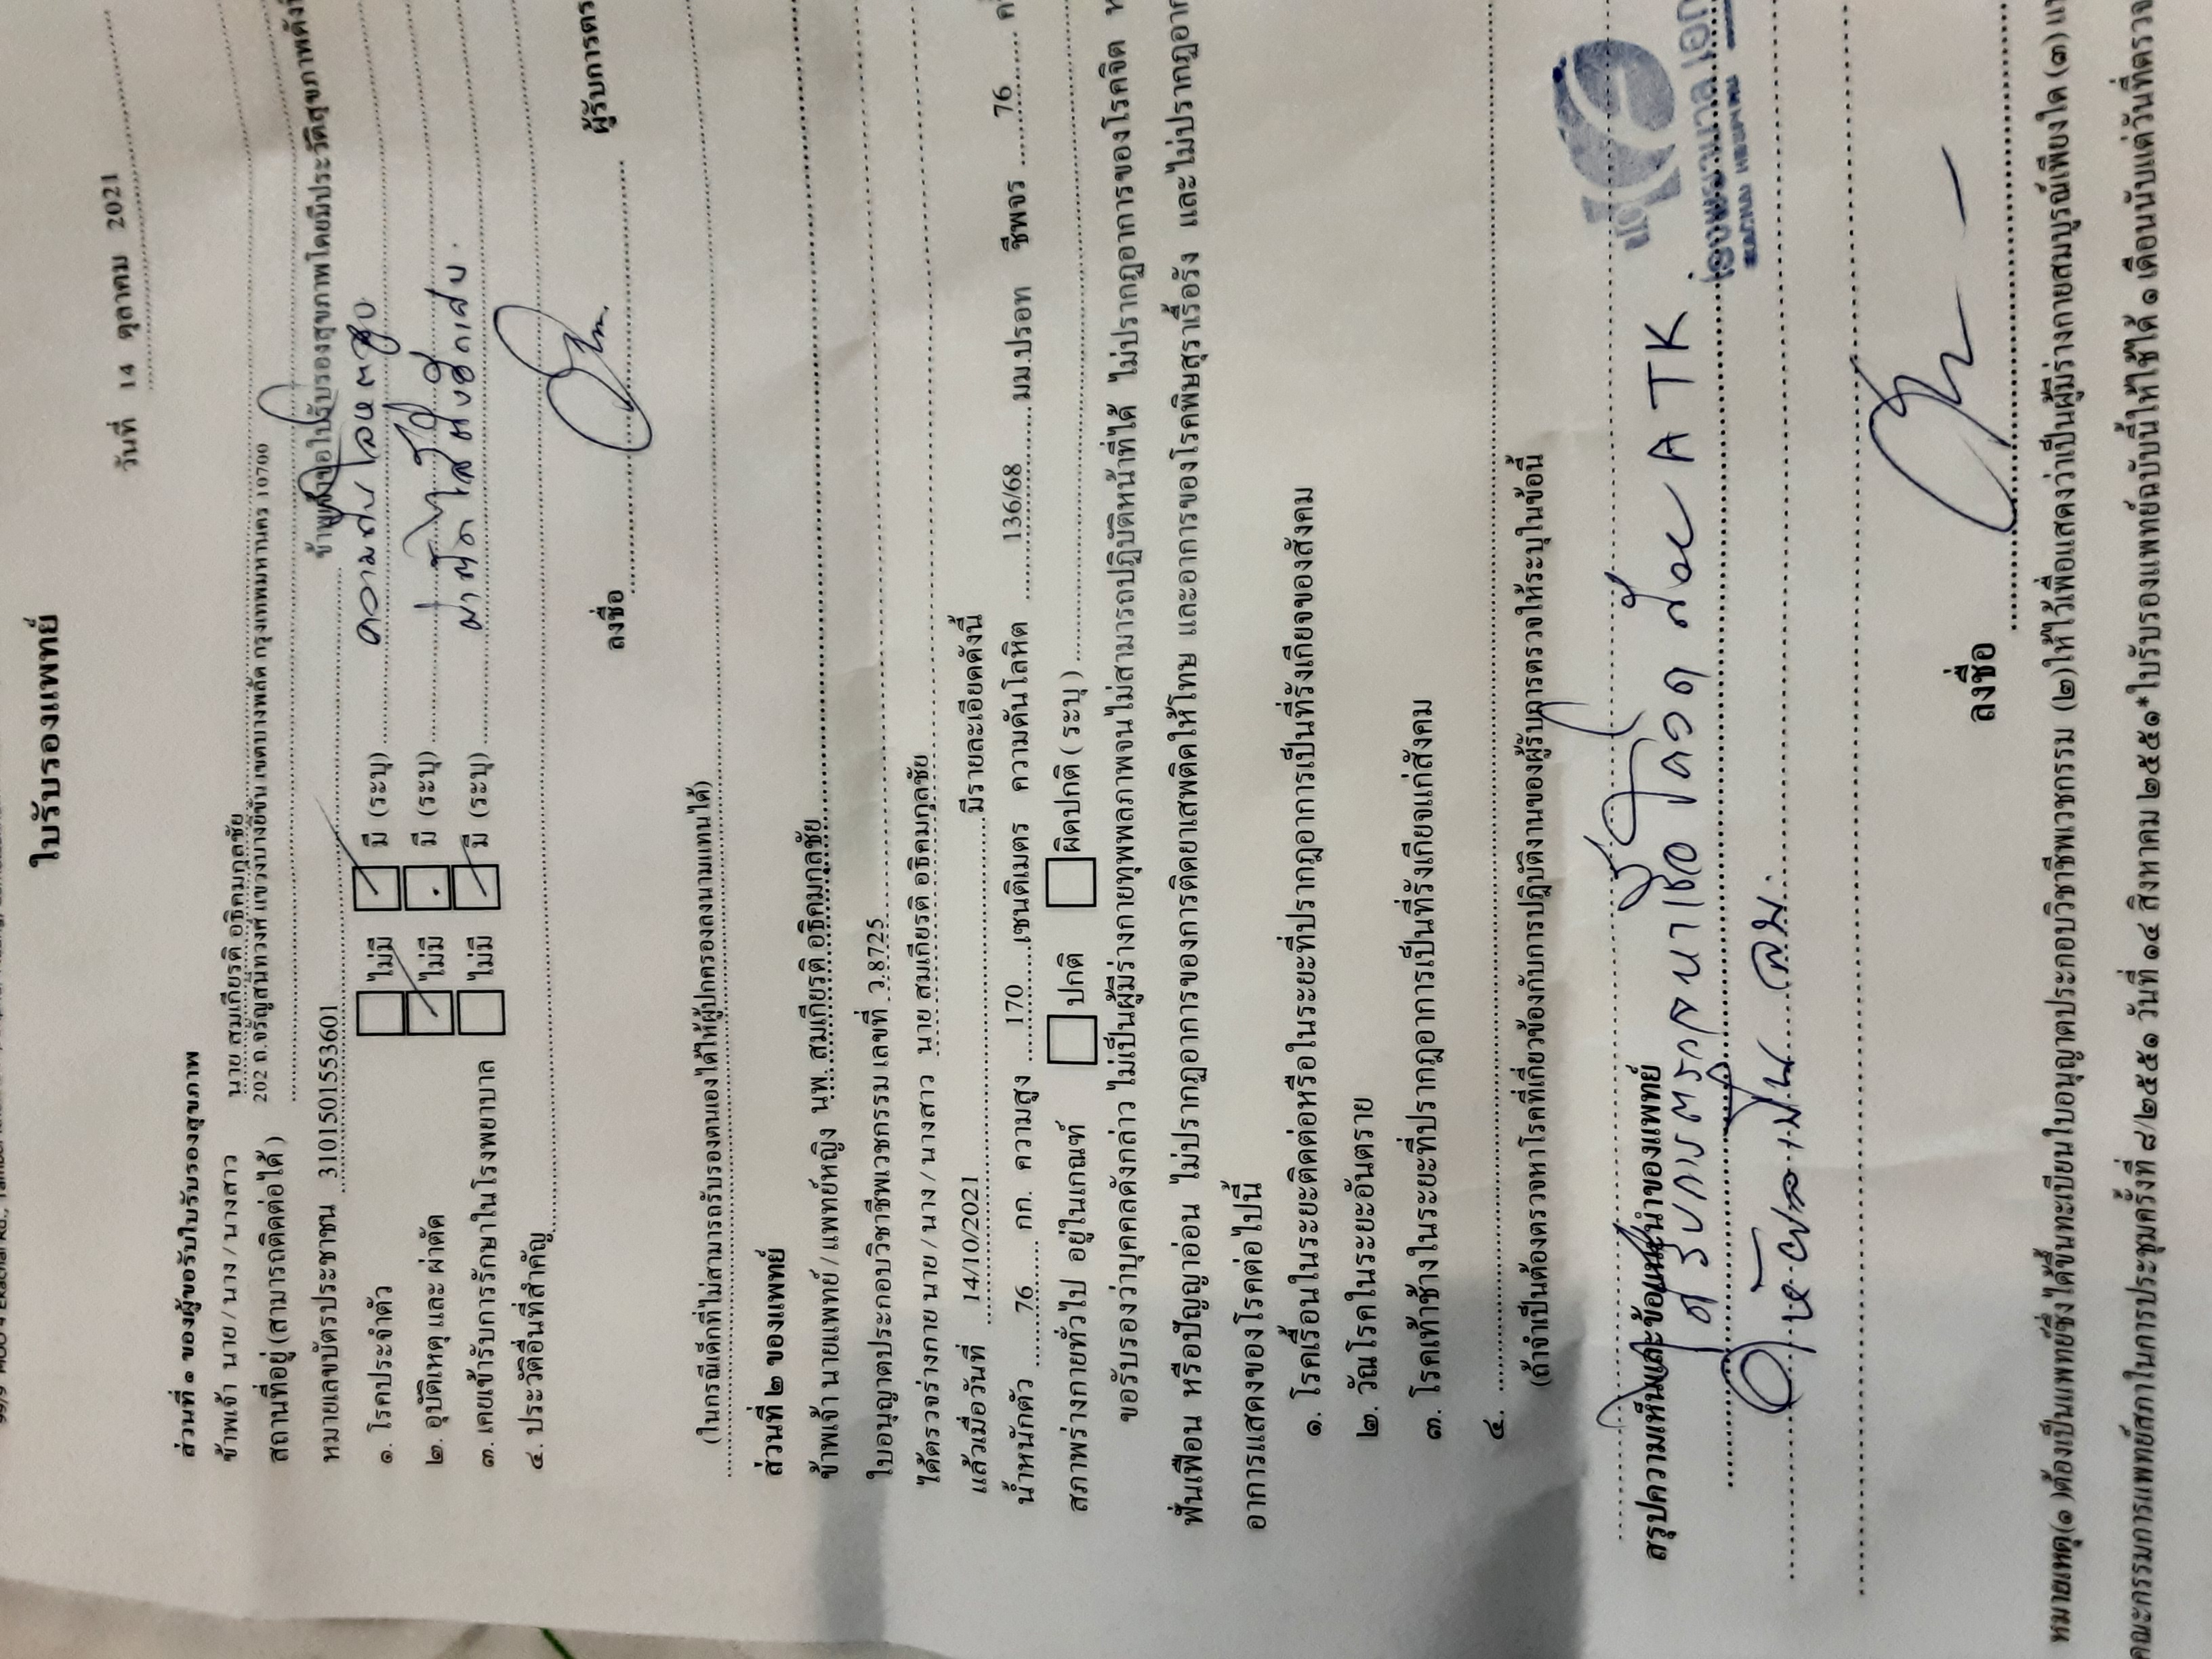 99/9 MOO 4 Ekachai Rd.,
ใบรับรองแพทย์
วันที่ 14 ตุลาคม 2021
ส่วนที่ ๑ ของผู้ขอรับใบรับรองสุขภาพ
ข้าพเจ้า นาย / นาง / นางสาว นาย สมเกียรติ อธิคมกุลชัย
สถานที่อยู่ (สามารถติดต่อได้ ) 202 ถ.จรัญสนิทวงศ์ แขวงบางยี่ขัน เขตบางพลัด กรุงเทพมหานคร 10700
หมายเลขบัตรประชาชน 3101501553601 ข้าพเจ้าขอใบรับรองสุขภาพโดยมีประวัติสุขภาพดังนี้
๑. โรคประจำตัว ไม่มี มี (ระบุ) ความดันโลหิตสูง
๒. อุบัติเหตุ และ ผ่าตัด ไม่มี มี (ระบุ)
๓. เคยเข้ารับการรักษาในโรงพยาบาล ไม่มี มี (ระบุ) ผ่าตัดไส้ติ่งอักเสบ
๔. ประวัติอื่นที่สำคัญ
ลงชื่อ ผู้รับการตร
(ในกรณีเด็กที่ไม่สามารถรับรองตนเองได้ให้ผู้ปกครองลงนามแทนได้)
ส่วนที่ ๒ ของแพทย์
ข้าพเจ้า นายแพทย์ / แพทย์หญิง นพ. สมเกียรติ อธิคมกุลชัย
ใบอนุญาตประกอบวิชาชีพเวชกรรม เลขที่ ว.8725
ได้ตรวจร่างกาย นาย / นาง / นางสาว นาย สมเกียรติ อธิคมกุลชัย
แล้วเมื่อวันที่ 14/10/2021 มีรายละเอียดดังนี้
น้ำหนักตัว 76 กก. ความสูง 170 เซนติเมตร ความดันโลหิต 136/68 มม.ปรอท ชีพจร 76
สภาพร่างกายทั่วไป อยู่ในเกณฑ์ ปกติ ผิดปกติ ( ระบุ )
ขอรับรองว่าบุคคลดังกล่าว ไม่เป็นผู้มีร่างกายทุพพลภาพจนไม่สามารถปฏิบัติหน้าที่ได้ ไม่ปรากฏอาการของโรคจิต
ฟั่นเฟือน หรือปัญญาอ่อน ไม่ปรากฏอาการของการติดยาเสพติดให้โทษ และอาการของโรคพิษสุราเรื้อรัง และไม่ปรากฏอาก
อาการแสดงของโรคต่อไปนี้
๑. โรคเรื้อนในระยะติดต่อหรือในระยะที่ปรากฎอาการเป็นที่รังเกียจของสังคม
๒. วัณโรคในระยะอันตราย
๓. โรคเท้าช้างในระยะที่ปรากฎอาการเป็นที่รังเกียจแก่สังคม
๔.
(ถ้าจำเป็นต้องตรวจหาโรคที่เกี่ยวข้องกับการปฎิบัติงานของผู้รับการตรวจให้ระบุในข้อนี้
สรุปความเห็นและข้อแนะนำของแพทย์
ได้รับการตรวจหาเชื้อโควิด ด้วย ATK.
ให้ผลเป็น ลบ.
ลงชื่อ
หมายเหตุ(๑ )ต้องเป็นแพทย์ซึ่งได้ขึ้นทะเบียนใบอนุญาตประกอบวิชาชีพเวชกรรม (๒)ให้ไว้เพื่อแสดงว่าเป็นผู้มีร่างกายสมบูรณ์เพียงใด (๓)
คณะกรรมการแพทย์สภาในการประชุมครั้งที่ ๘/๒๕๕๑ วันที่ ๑๔ สิงหาคม ๒๕๕๑*ใบรับรองแพทย์ฉบับนี้ให้ใช้ได้ ๑ เดือนนับแต่วันที่ตรวจ